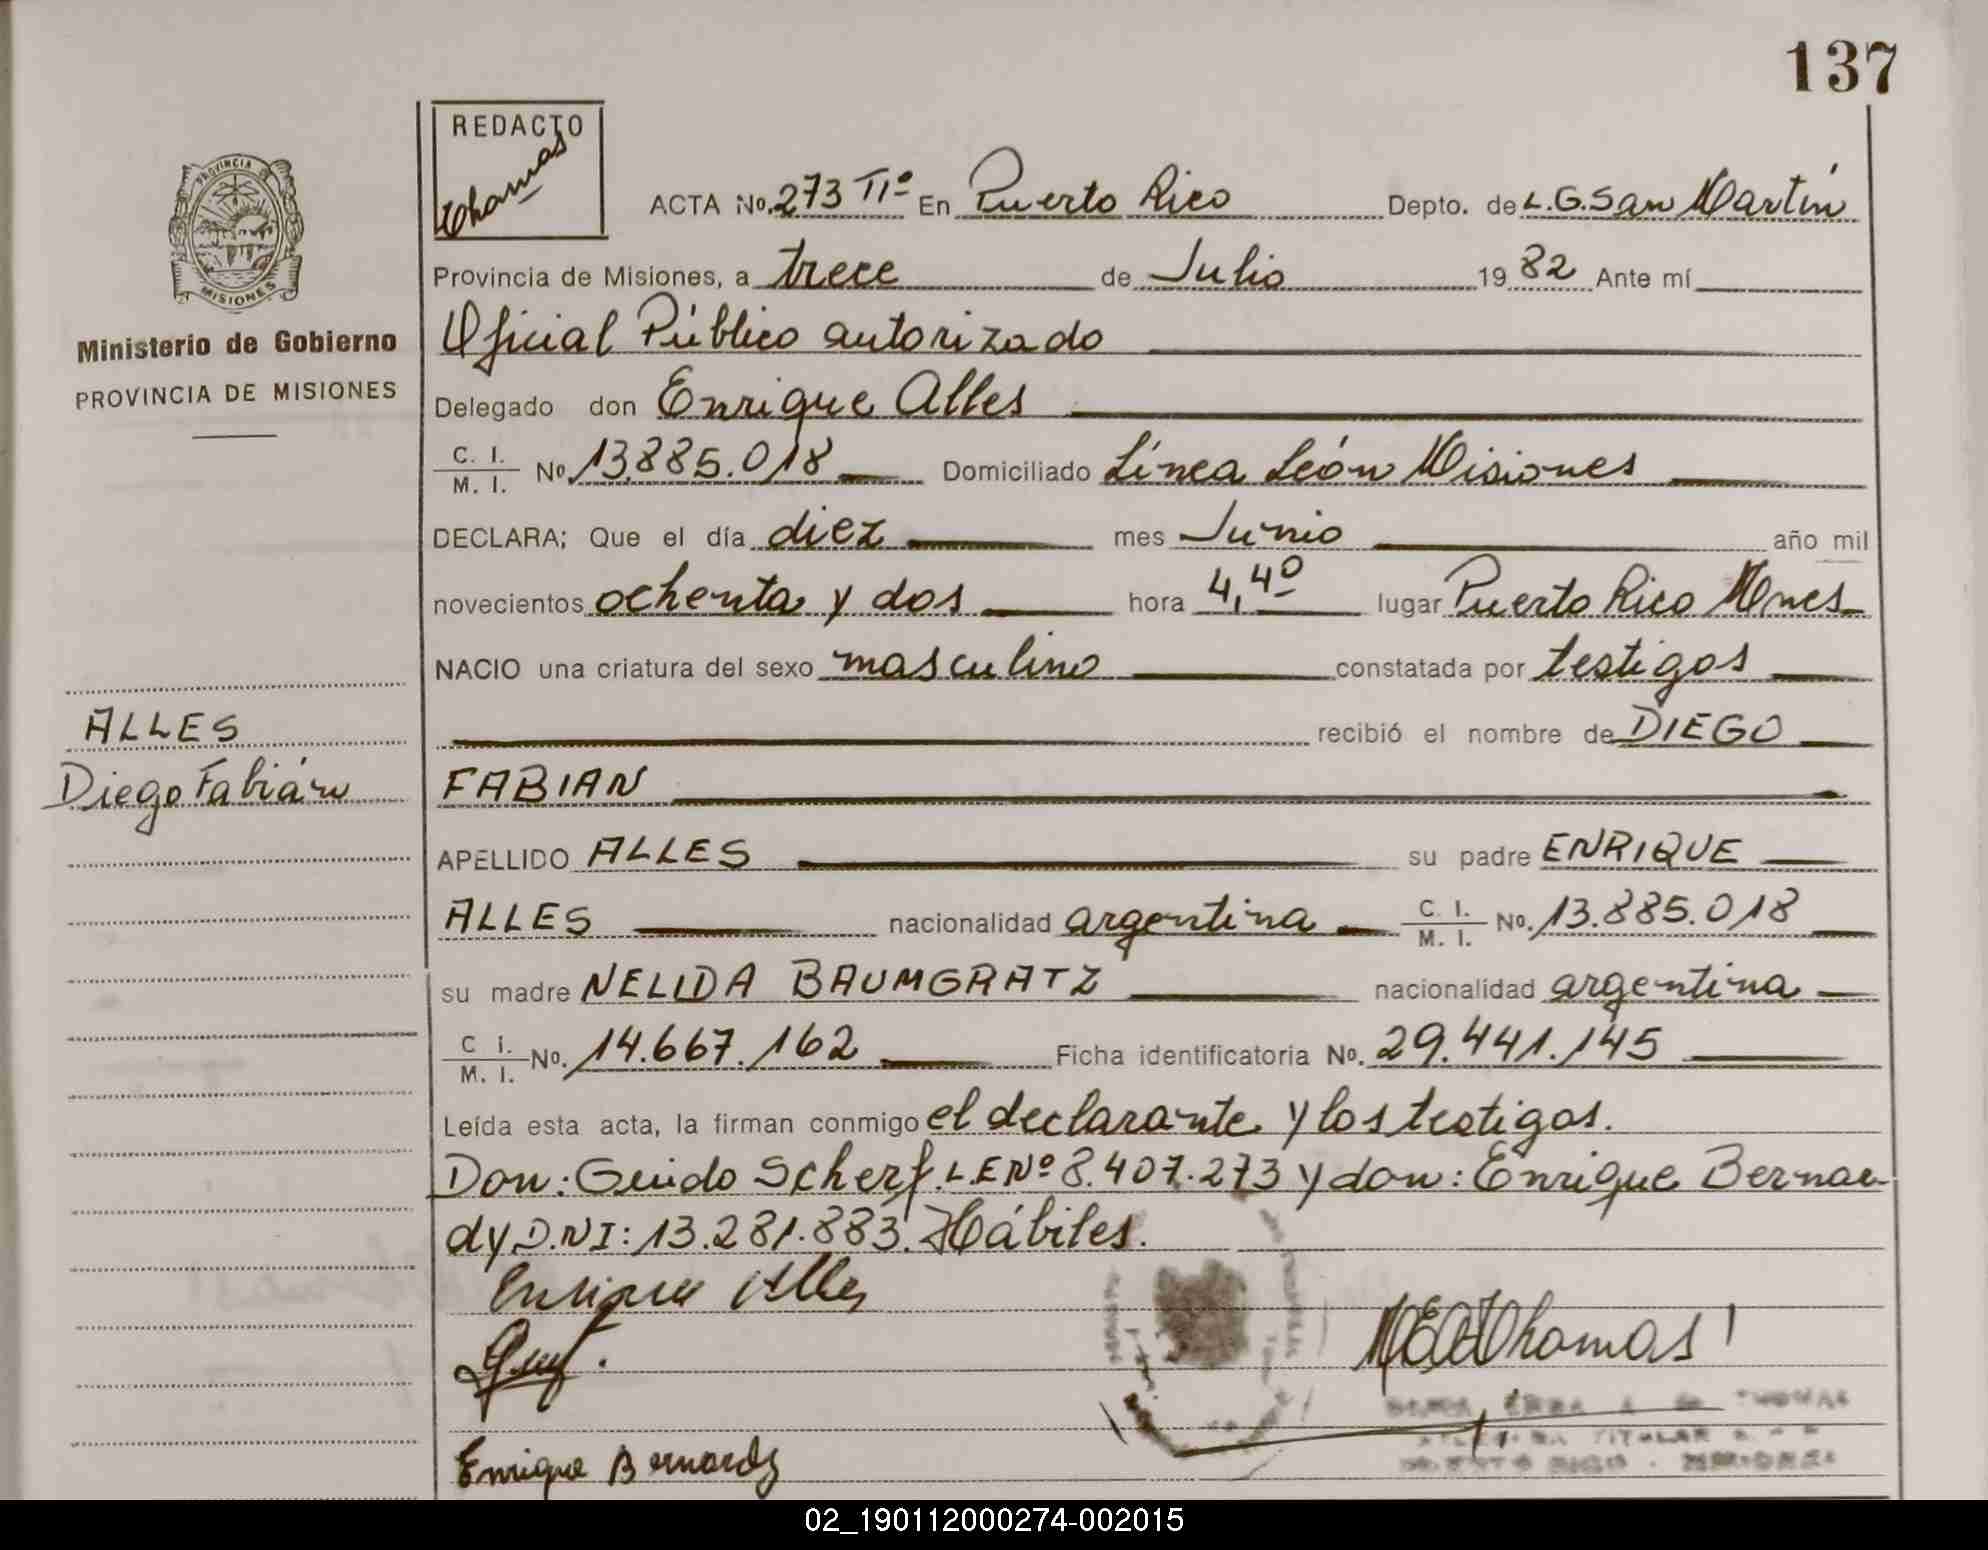 137
REDACTO
Thomas
PROVINCIA
MISIONES
Ministerio de Gobierno
PROVINCIA DE MISIONES
ACTA No. 273 TIº En Puerto Rico Depto. de L.G.San Martín
Provincia de Misiones, a trece de Julio 1982 Ante mí
Oficial Público autorizado
Delegado don Enrique Alles
C. I. / M. I. No. 13.885.018 Domiciliado Línea León Misiones
DECLARA; Que el día diez mes Junio año mil
novecientos ochenta y dos hora 4,40 lugar Puerto Rico Mnes
NACIO una criatura del sexo masculino constatada por testigos
recibió el nombre de DIEGO
FABIAN
ALLES
Diego Fabián
APELLIDO ALLES su padre ENRIQUE
ALLES nacionalidad argentina C. I. / M. I. No. 13.885.018
su madre NELIDA BAUMGRATZ nacionalidad argentina
C i. / M. I. No. 14.667.162 Ficha identificatoria No. 29.441.145
Leída esta acta, la firman conmigo el declarante y los testigos.
Don: Guido Scherf. L.E Nº 8.407.273 y don: Enrique Bernar-
dy D.NI: 13.281.883. Hábiles.
Enrique Alles
Thomas
Enrique Bernardy
THOMAS
TITULAR
02_190112000274-002015